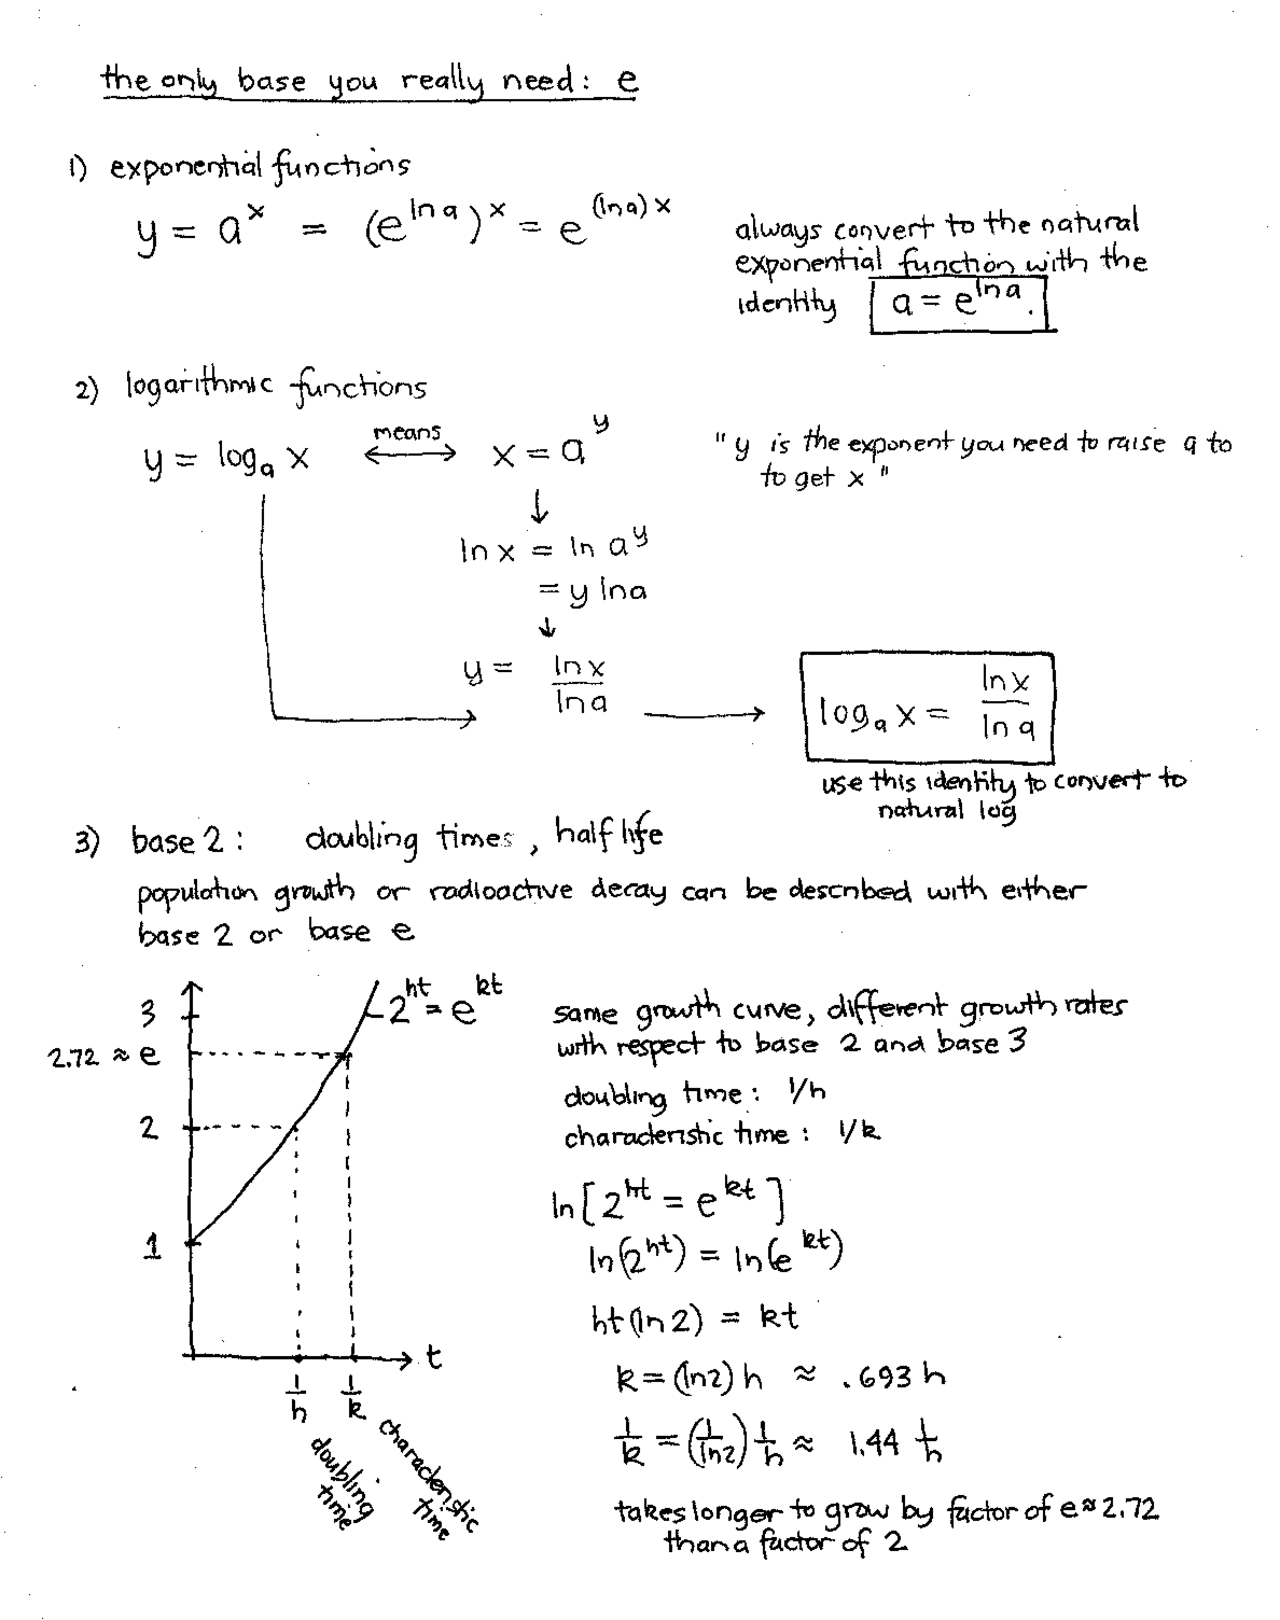 the only base you really need: e
1) exponential functions
y = a^x = (e^{ln a})^x = e^{(ln a) x}
always convert to the natural
exponential function with the
identity a = e^{ln a}.
2) logarithmic functions
y = log_a x <-means-> x = a^y
"y is the exponent you need to raise a to
to get x"
↓
ln x = ln a^y
= y ln a
↓
y = ln x / ln a → log_a x = ln x / ln a
use this identity to convert to
natural log
3) base 2: doubling times, half life
population growth or radioactive decay can be described with either
base 2 or base e
2^{ht} = e^{kt}
3
2.72 ≈ e
2
1
t
1/h
1/k
doubling
time
characteristic
time
same growth curve, different growth rates
with respect to base 2 and base 3
doubling time: 1/h
characteristic time: 1/k
ln[2^{ht} = e^{kt}]
ln(2^{ht}) = ln(e^{kt})
ht(ln 2) = kt
k = (ln 2) h ≈ .693 h
1/k = (1/ln 2) 1/h ≈ 1.44 1/h
takes longer to grow by factor of e ≈ 2.72
than a factor of 2